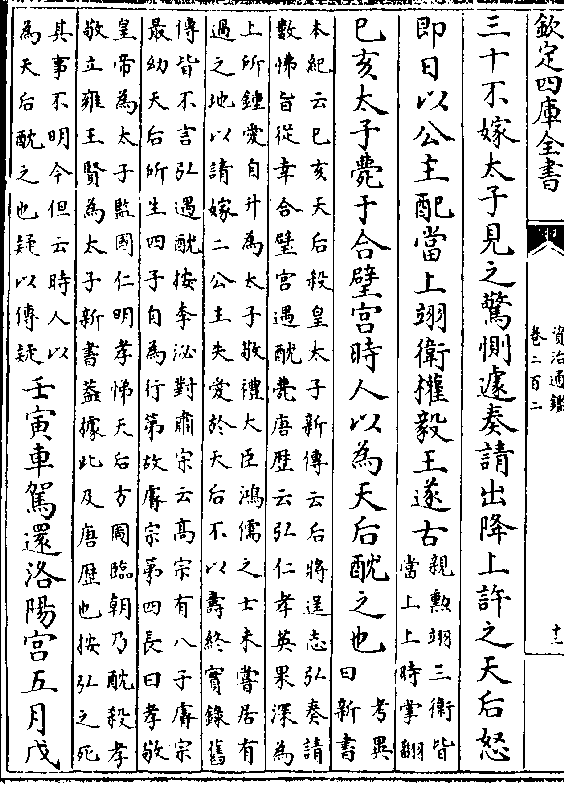 欽定四庫全書
資治通鑑
卷二百二
十一
三十不嫁太子見之驚惻遽奏請出降上許之天后怒
即日以公主配當上翊衛權毅王遂古
親勲翊三衛皆
當上上時掌翻
己亥太子薨于合璧宫時人以為天后酖之也
考異
曰新書
本紀云己亥天后殺皇太子新傳云后將逞志弘奏請
數怫旨從幸合璧宫遇酖薨唐歴云弘仁孝英果深為
上所鍾愛自升為太子敬禮大臣鴻儒之士未嘗居有
過之地以請嫁二公主失愛於天后不以壽終實錄舊
傳皆不言弘遇酖按李泌對肅宗云髙宗有八子睿宗
最幼天后所生四子自為行第故睿宗第四長曰孝敬
皇帝為太子監國仁明孝悌天后方圖臨朝乃酖殺孝
敬立雍王賢為太子新書蓋據此及唐歴也按弘之死
其事不明今但云時人以
為天后酖之也疑以傳疑
壬寅車駕還洛陽宫五月戊